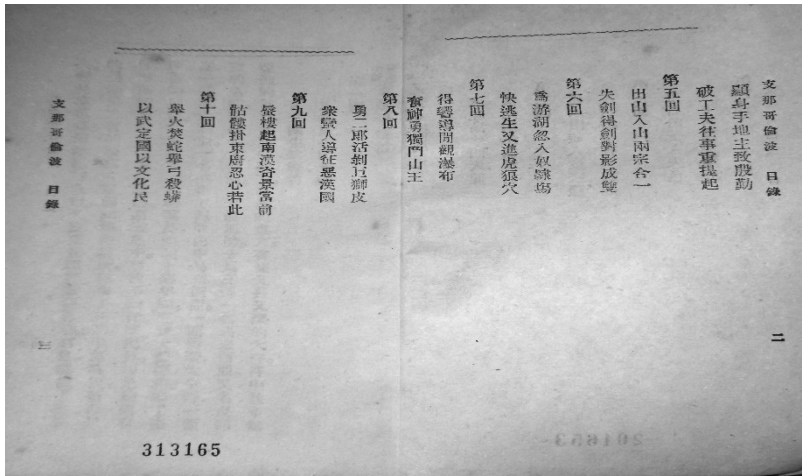 支那哥倫波　目錄
顯身手地主致殷勤
破工夫往事重提起
第五回
出山入山兩宗合一
失劍得劍對影成雙
第六回
爲游湖忽入奴隸塲
快逃生又進虎狼穴
第七回
得嚮導閒觀瀑布
奮神勇獨鬥山王
二
第八回
勇二郎活剝巨獅皮
衆蠻人導征惡漢國
第九回
蜃樓起南漠奇景當前
骷髏掛東府忍心若此
第十回
舉火焚蛇舉弓殺蟒
以武定國以文化民
支那哥倫波　目錄
三
313165